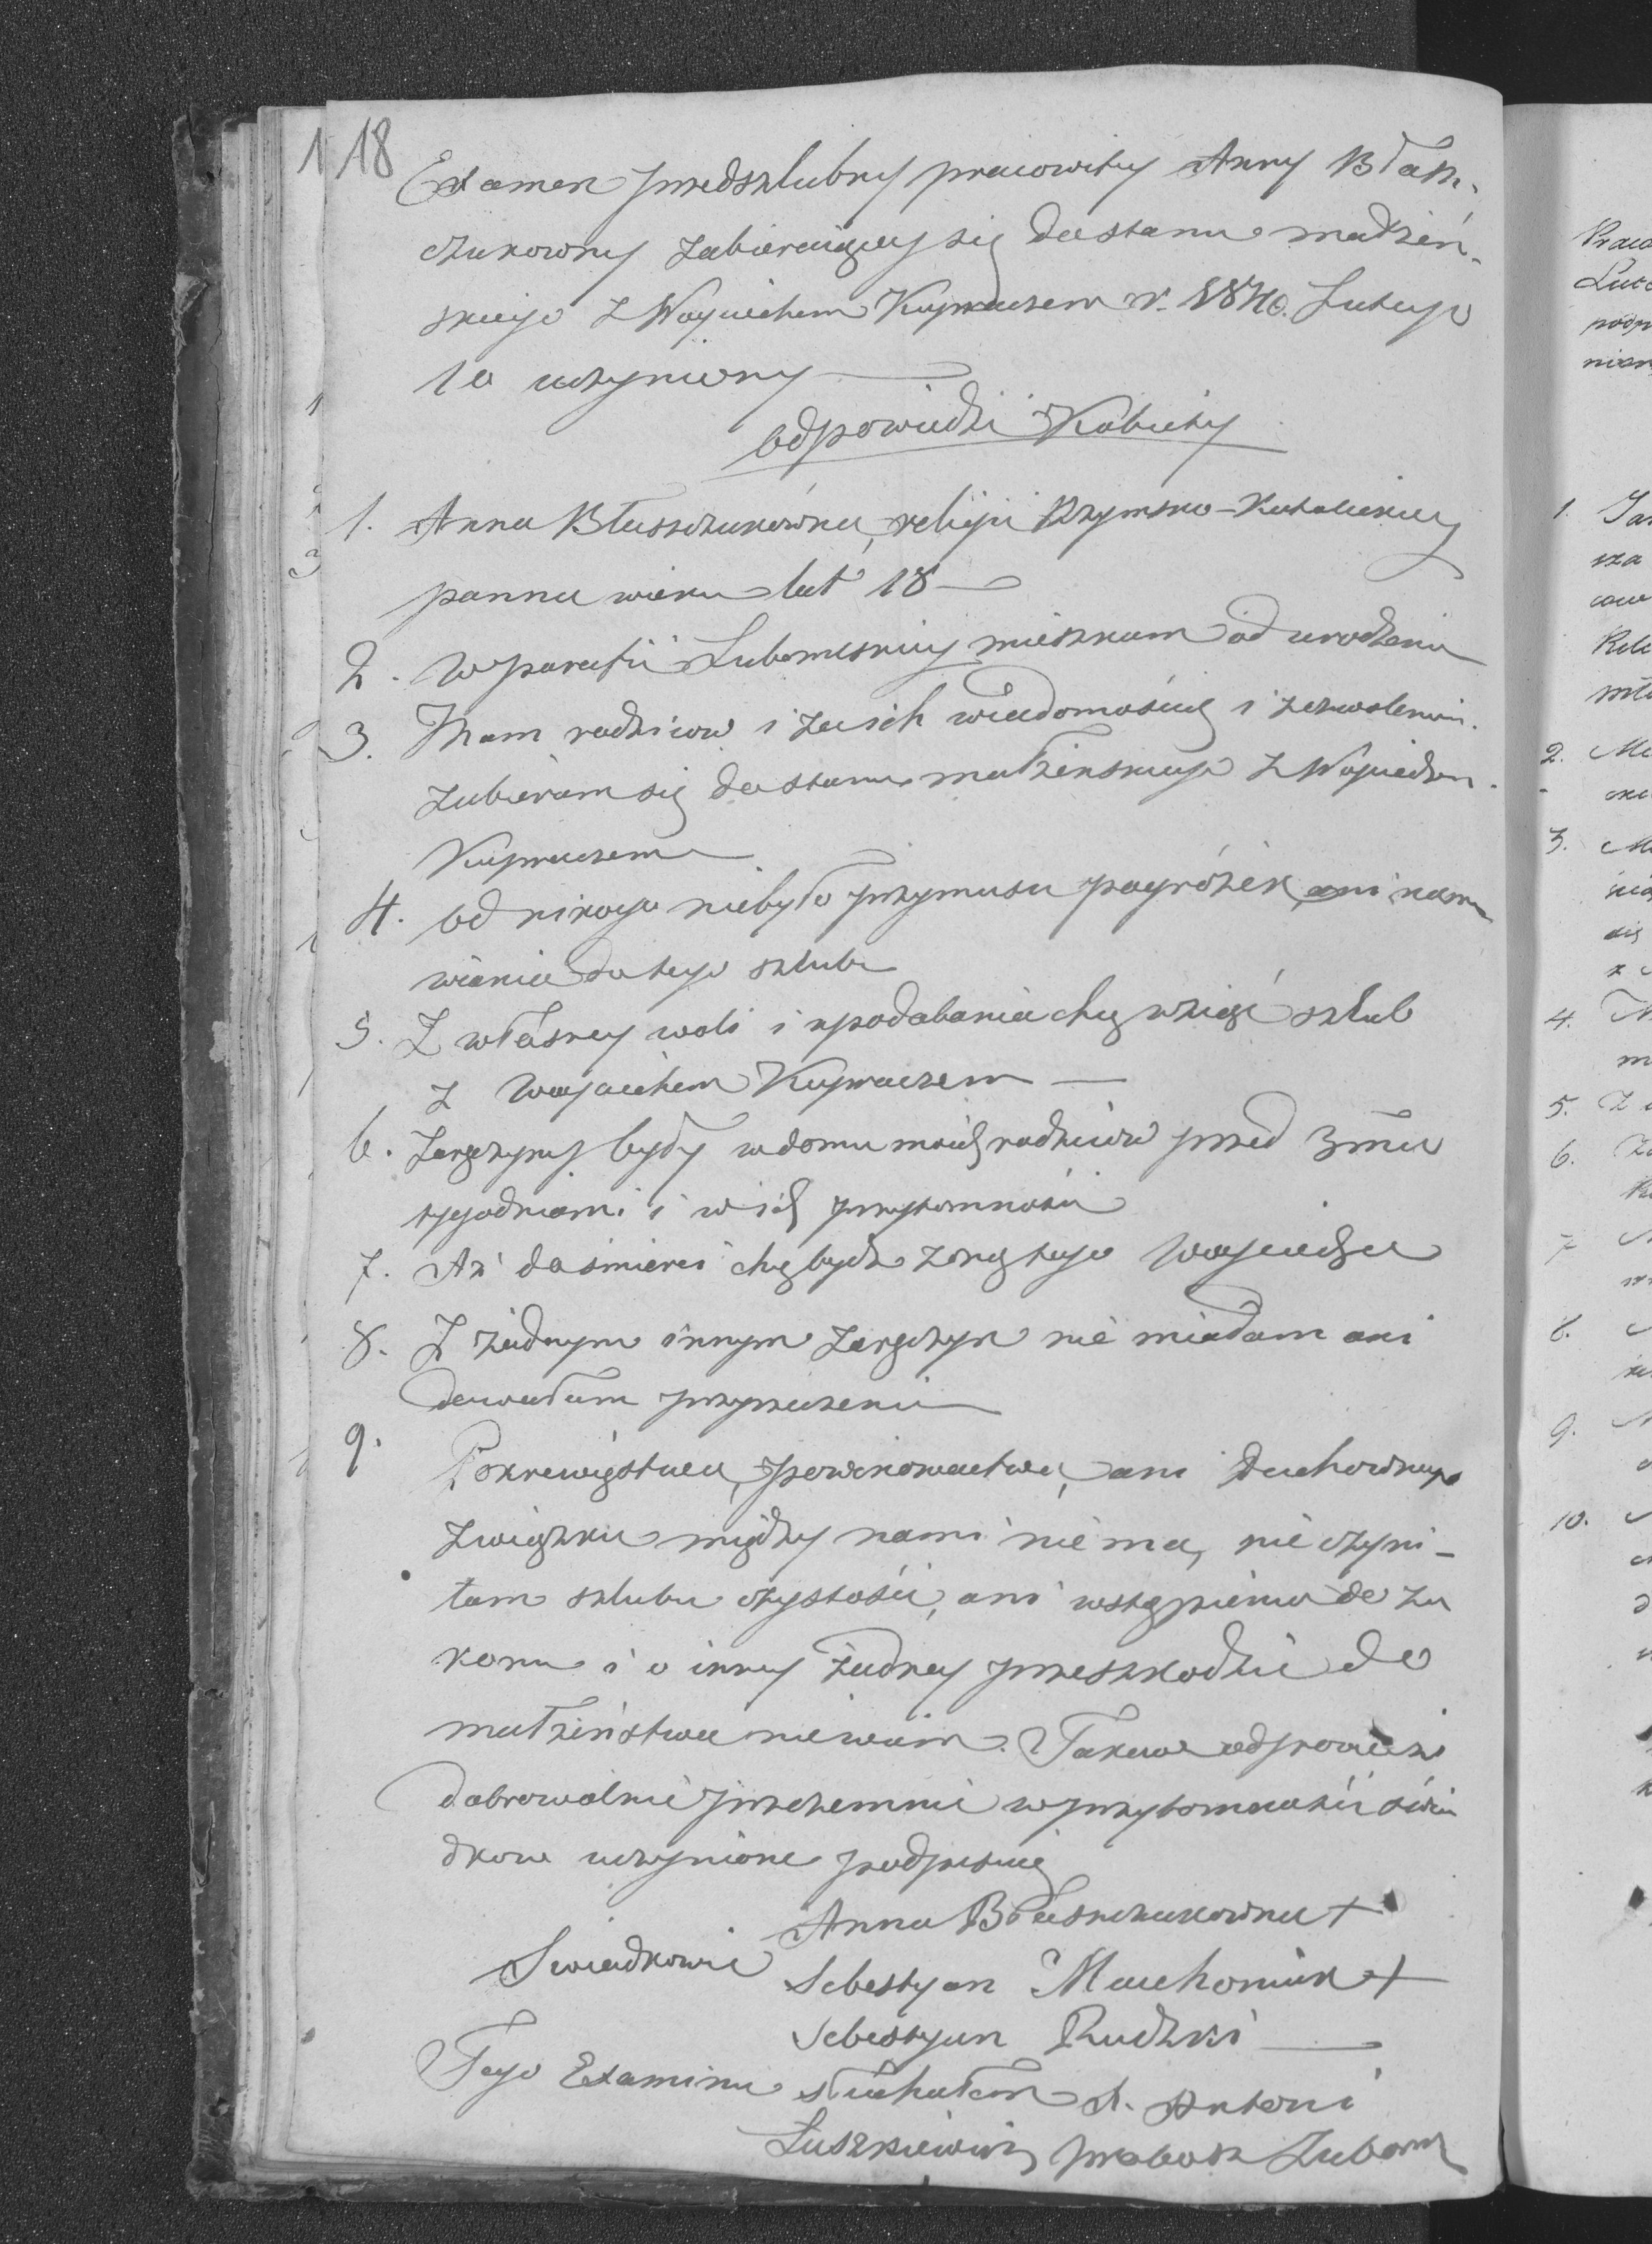 18
Examen przedszlubny pracowitey Anny Błasz-
czukowny zabieraiącey się do stanu małżeń-
skiego z Woyciechem Kupraszem r. 1840. Lutego
10 uczyniony
odpowiedzi Kobiety
1. Anna Błaszczukówna, religii Rzymsko-Katolickiey
panna wieku lat 18
2. w parafii Lubomeskiey mieszkam od urodzenia
3. Mam rodziców i za ich wiadomością i zezwoleniem
zabieram się do stanu małżenskiego z Woyciechem
Kupraszem
4. od nikogo niebyło przymusu pogróżek ani namo
wienia do tego szlubu
5. Z własney woli i upodobania chcę wziąść szlub
z Woyciechem Kupraszem
6. Zaręczyny były w domu moich rodziców przed 3ma
tygodniami i w ich przytomności
7. Aż do śmierci chcę bydz żoną tego Woyciecha
8. Z żadnym innym zaręczyn nie miałam ani
dawałam przyrzeczenia
9. Pokrewięstwa, powinowactwa, ani duchownego
związku między nami nie ma, nie czyni-
łam szlubu czystości, ani wstąpienia do za
konu i o inney żadney przeszkodzie do
małżeństwa niewiem. Takowe odpowiedzi
dobrowolnie przezemnie w przytomności świa
dkow uczynione podpisuię
Anna Błaszczukowna +
Swiadkowie Sebestyan Machoniuk +
Sebestyan Rudzki
Tego Examinu słuchałem X. Antoni
Łuszkiewicz proboszcz Lubom